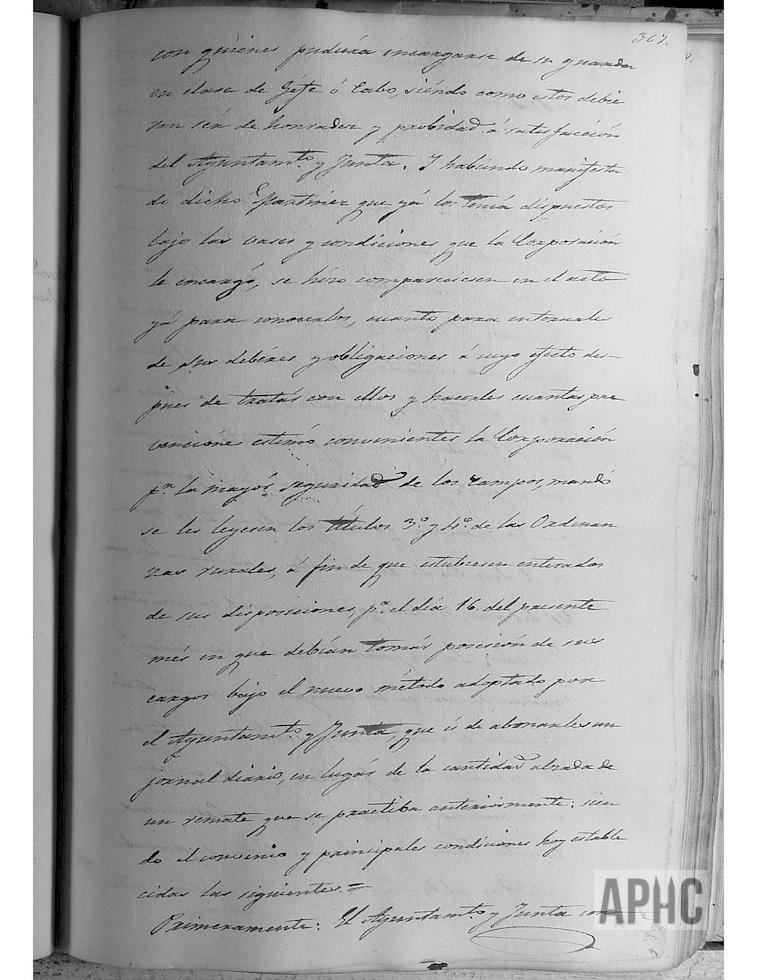 367.
con quiénes pudiera encargarse de su guarda
en clase de Géfe ó Cabo, siéndo como estos debie
ran ser de honradez y probidad á satisfacción
del Ayuntamto. y Junta. Y habiendo manifesta
do dicho Martinez que yá los tenía dispuestos
bajo las vases y condiciones que la Corporación
le encargó, se hizo compareciesen en el acto
yá para conocerlos, cuanto para enterarles
de sus debéres y obligaciones á cuyo efecto des-
pues de tratár con ellos y hacerles cuantas pre
venciónes estimó convenientes la Corporación
pa. la mayór seguridad de los Campos, mandó
se les leyesen los títulos 3º y 4º. de las Ordenan
zas rurales, á fin de que estubiesen enterados
de sus disposiciones, pa. el día 16. del presente
més en que debían tomár posesión de sus
cargos bajo el nuevo método adoptado por
el Ayuntamto. y Junta, que és de abonarles un
jornal diario, en lugár de la cantidad alzada de
un remate que se practiba anteriórmente: sien
do el convenio y principales condiciónes hoy estable
cidas las siguientes.=
Primeramente: El Ayuntamto. y Junta con
APHC